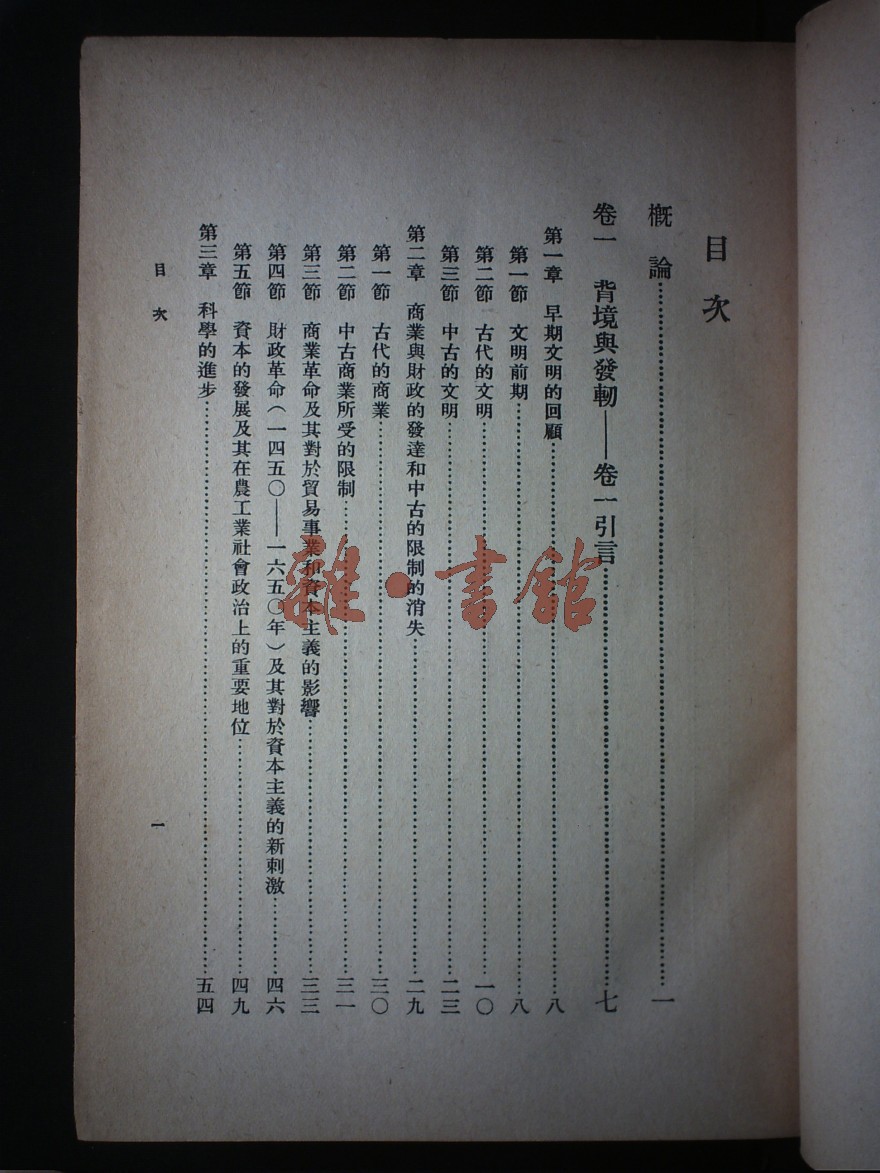 目次
概論……一
卷一　背境與發軔——卷一引言……七
第一章　早期文明的回顧……八
第一節　文明前期……八
第二節　古代的文明……一〇
第三節　中古的文明……二三
第二章　商業與財政的發達和中古的限制的消失……二九
第一節　古代的商業……三〇
第二節　中古商業所受的限制……三一
第三節　商業革命及其對於貿易事業和資本主義的影響……三三
第四節　財政革命（一四五〇——一六五〇年）及其對於資本主義的新刺激……四六
第五節　資本的發展及其在農工業社會政治上的重要地位……四九
第三章　科學的進步……五四
目次
一
雜·書館